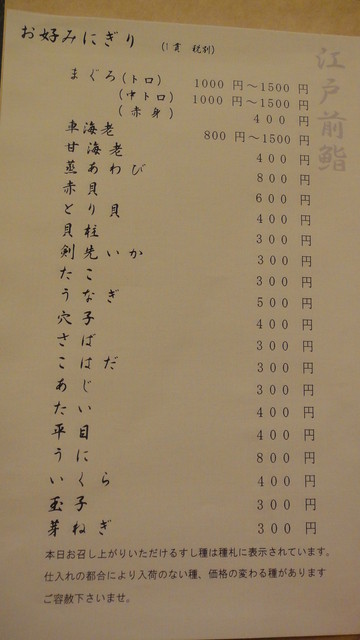 お好みにぎり (1貫 税別)
江戸前鮨
まぐろ(トロ) 1000円～1500円
(中トロ) 1000円～1500円
(赤身) 400円
車海老 800円～1500円
甘海老 400円
蒸あわび 800円
赤貝 600円
とり貝 400円
貝柱 300円
剣先いか 300円
たこ 300円
うなぎ 500円
穴子 400円
さば 300円
こはだ 300円
あじ 300円
たい 400円
平目 400円
うに 800円
いくら 400円
玉子 300円
芽ねぎ 300円
本日お召し上がりいただけるすし種は種札に表示されています。
仕入れの都合により入荷のない種、価格の変わる種があります
ご容赦下さいませ。